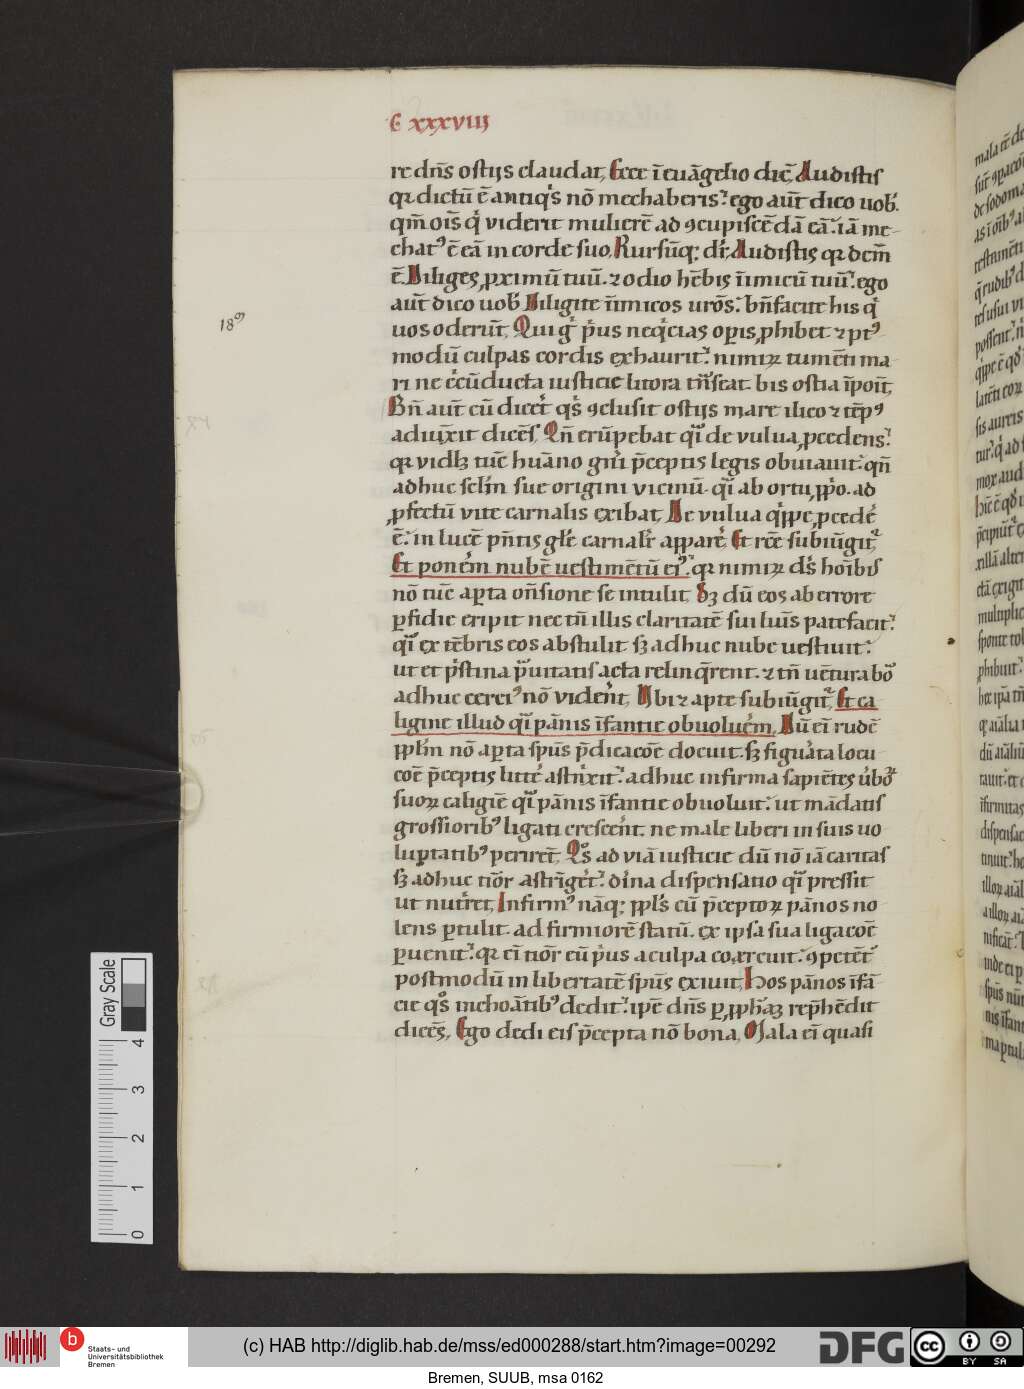 C xxxviii
re dn̄s ostijs claudat. Ecce ī euāgelio dic̄. Audistis
qꝛ dictū ē antiqͥs nō mechaberis. ego aut̄ dico uob̛.
qm̄ oīs qͥ viderit mulierē ad ꝯcupiscēdā eā. iā me
chatꝰ ē eā in corde suo. Rursūq; dr̄. Audistis qꝛ dcm̄
ē. Diliges ꝓximū tuū. ⁊ odio hēbis īimicū tuū. ego
aut̄ dico uob̛ Diligite īimicos ur̄os. bn̄facite his qͥ
18ꝰ
uos oderūt. Qui gͦ pͥus neqͥcias oꝑis ꝓhibet ⁊ ptꝰ
modū culpas cordis exhaurit. nimiꝝ tumēti ma
ri ne ec̄ūducta iusticie litora trn̄seat. bis ostia īpoīt.
Bn̄ aut̄ cū dicet̛ qͥs ꝯclusit ostijs mare ilico ⁊ tēpꝰ
adiūxit dicēs. Qn̄ erūpebat qͣi de vulua ꝓcedens.
qꝛ vidꝫ tūc huāno gn̄i p̄ceptis legis obuiauit. qn̄
adhuc sclm̄ sue origini vicinū. qͣi ab ortu ꝓpͥo. ad
ꝓfectū vite carnalis exibat. De vulua qͥppe ꝓcede̛
ē. in lucē pn̄tis glē carnalr̄ appare̛. Et rc̄e subiūgit̛.
Et ponere̛m nubē uestimētū eiꝰ. qꝛ nimiꝝ ds̄ hoībis
nō tūc aꝑta on̄sione se intulit. Sꝫ dū eos ab errore
ꝑfidie eripit nec tn̄ illis claritatē sui luīs patefacit.
qͣi ex tēbris eos abstulit sꝫ adhuc nube uestiuit.
ut et pͥstina pͣuitatis acta relinq̄rent. ⁊ tn̄ uētura boͣ
adhuc cerciꝰ nō vident̛. Ubi ⁊ apte subiūgit̛. Et ca
ligine illud qͣi pānis īfantie obuoluere̛m. Dū eī rudē
ꝓplm̄ nō aꝑta sp̄us p̄dicacōē docuit. sꝫ figurata locu
coē p̄ceptis litte̛ astrīxit. adhuc infirma sapiētes ưboꝝ
suoꝝ caligīe qͣi pānis īfantie obuoluit. ut mādatis
grossioribꝰ ligati crescere̛nt. ne male liberi in suis uo
luptatibꝰ perirēt. Qͦs ad viā iusticie dū nō iā caritas
sꝫ adhuc tiōr astrīget̛. dīna dispensatio qͣi pressit
ut nutrͥret. Infirmꝰ nāq; ꝓpl̛s cū p̄ceptoꝝ pānos no
lens ꝑtulit. ad firmiorē statū. ex ipsa sua ligacoē
ꝑuenit. qꝛ eī tiōr eū pͥus a culpa coercuit. ꝯpetēt̛
postmodū in libertatē sp̄us exiuit. Hos pānos īfā
cie qͦs inchoātibꝰ dedit. ip̄e dn̄s ꝑ ꝓph̄aꝫ rep̄hēdit
dicēs. Ego dedi eis p̄cepta nō bona. Mala eī quasi
Gray Scale
4
3
2
1
0
b
Staats- und
Universitätsbibliothek
Bremen
(c) HAB http://diglib.hab.de/mss/ed000288/start.htm?image=00292
DFG
cc
BY
SA
Bremen, SUUB, msa 0162